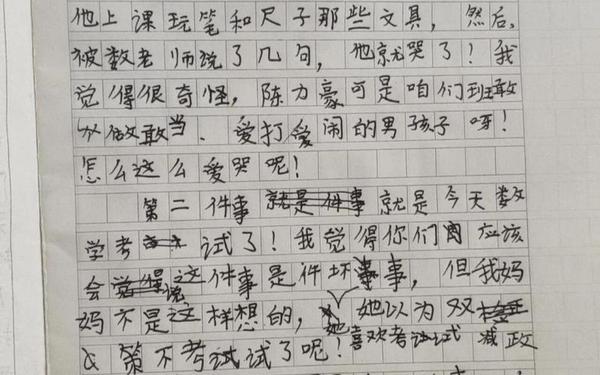 他上课玩笔和尺子那些文具，然后，
被数老师说了几句，他就哭了！我
觉得很奇怪，陈力豪可是咱们班敢
做敢当、爱打爱闹的男孩子呀！
怎么这么爱哭呢！
第二件事就是件事就是今天数
学考试了！我觉得你们应该
会觉得说这件事是件坏事，但我妈
妈不是这样想的，她以为双
她喜欢考试 减政
策不考试试了呢！